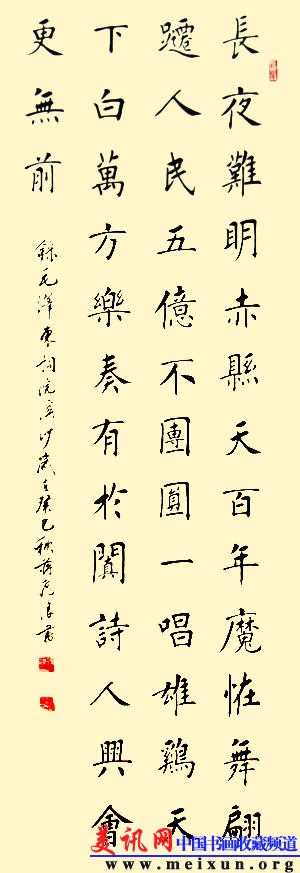 長夜難明赤縣天百年魔恠舞翩
躚人民五億不團圓一唱雄鷄天
下白萬方樂奏有於闐詩人興會
更無前
錄毛澤東詞浣溪沙歲在癸巳秋
美讯网 中国书画收藏频道
www.meixun.org